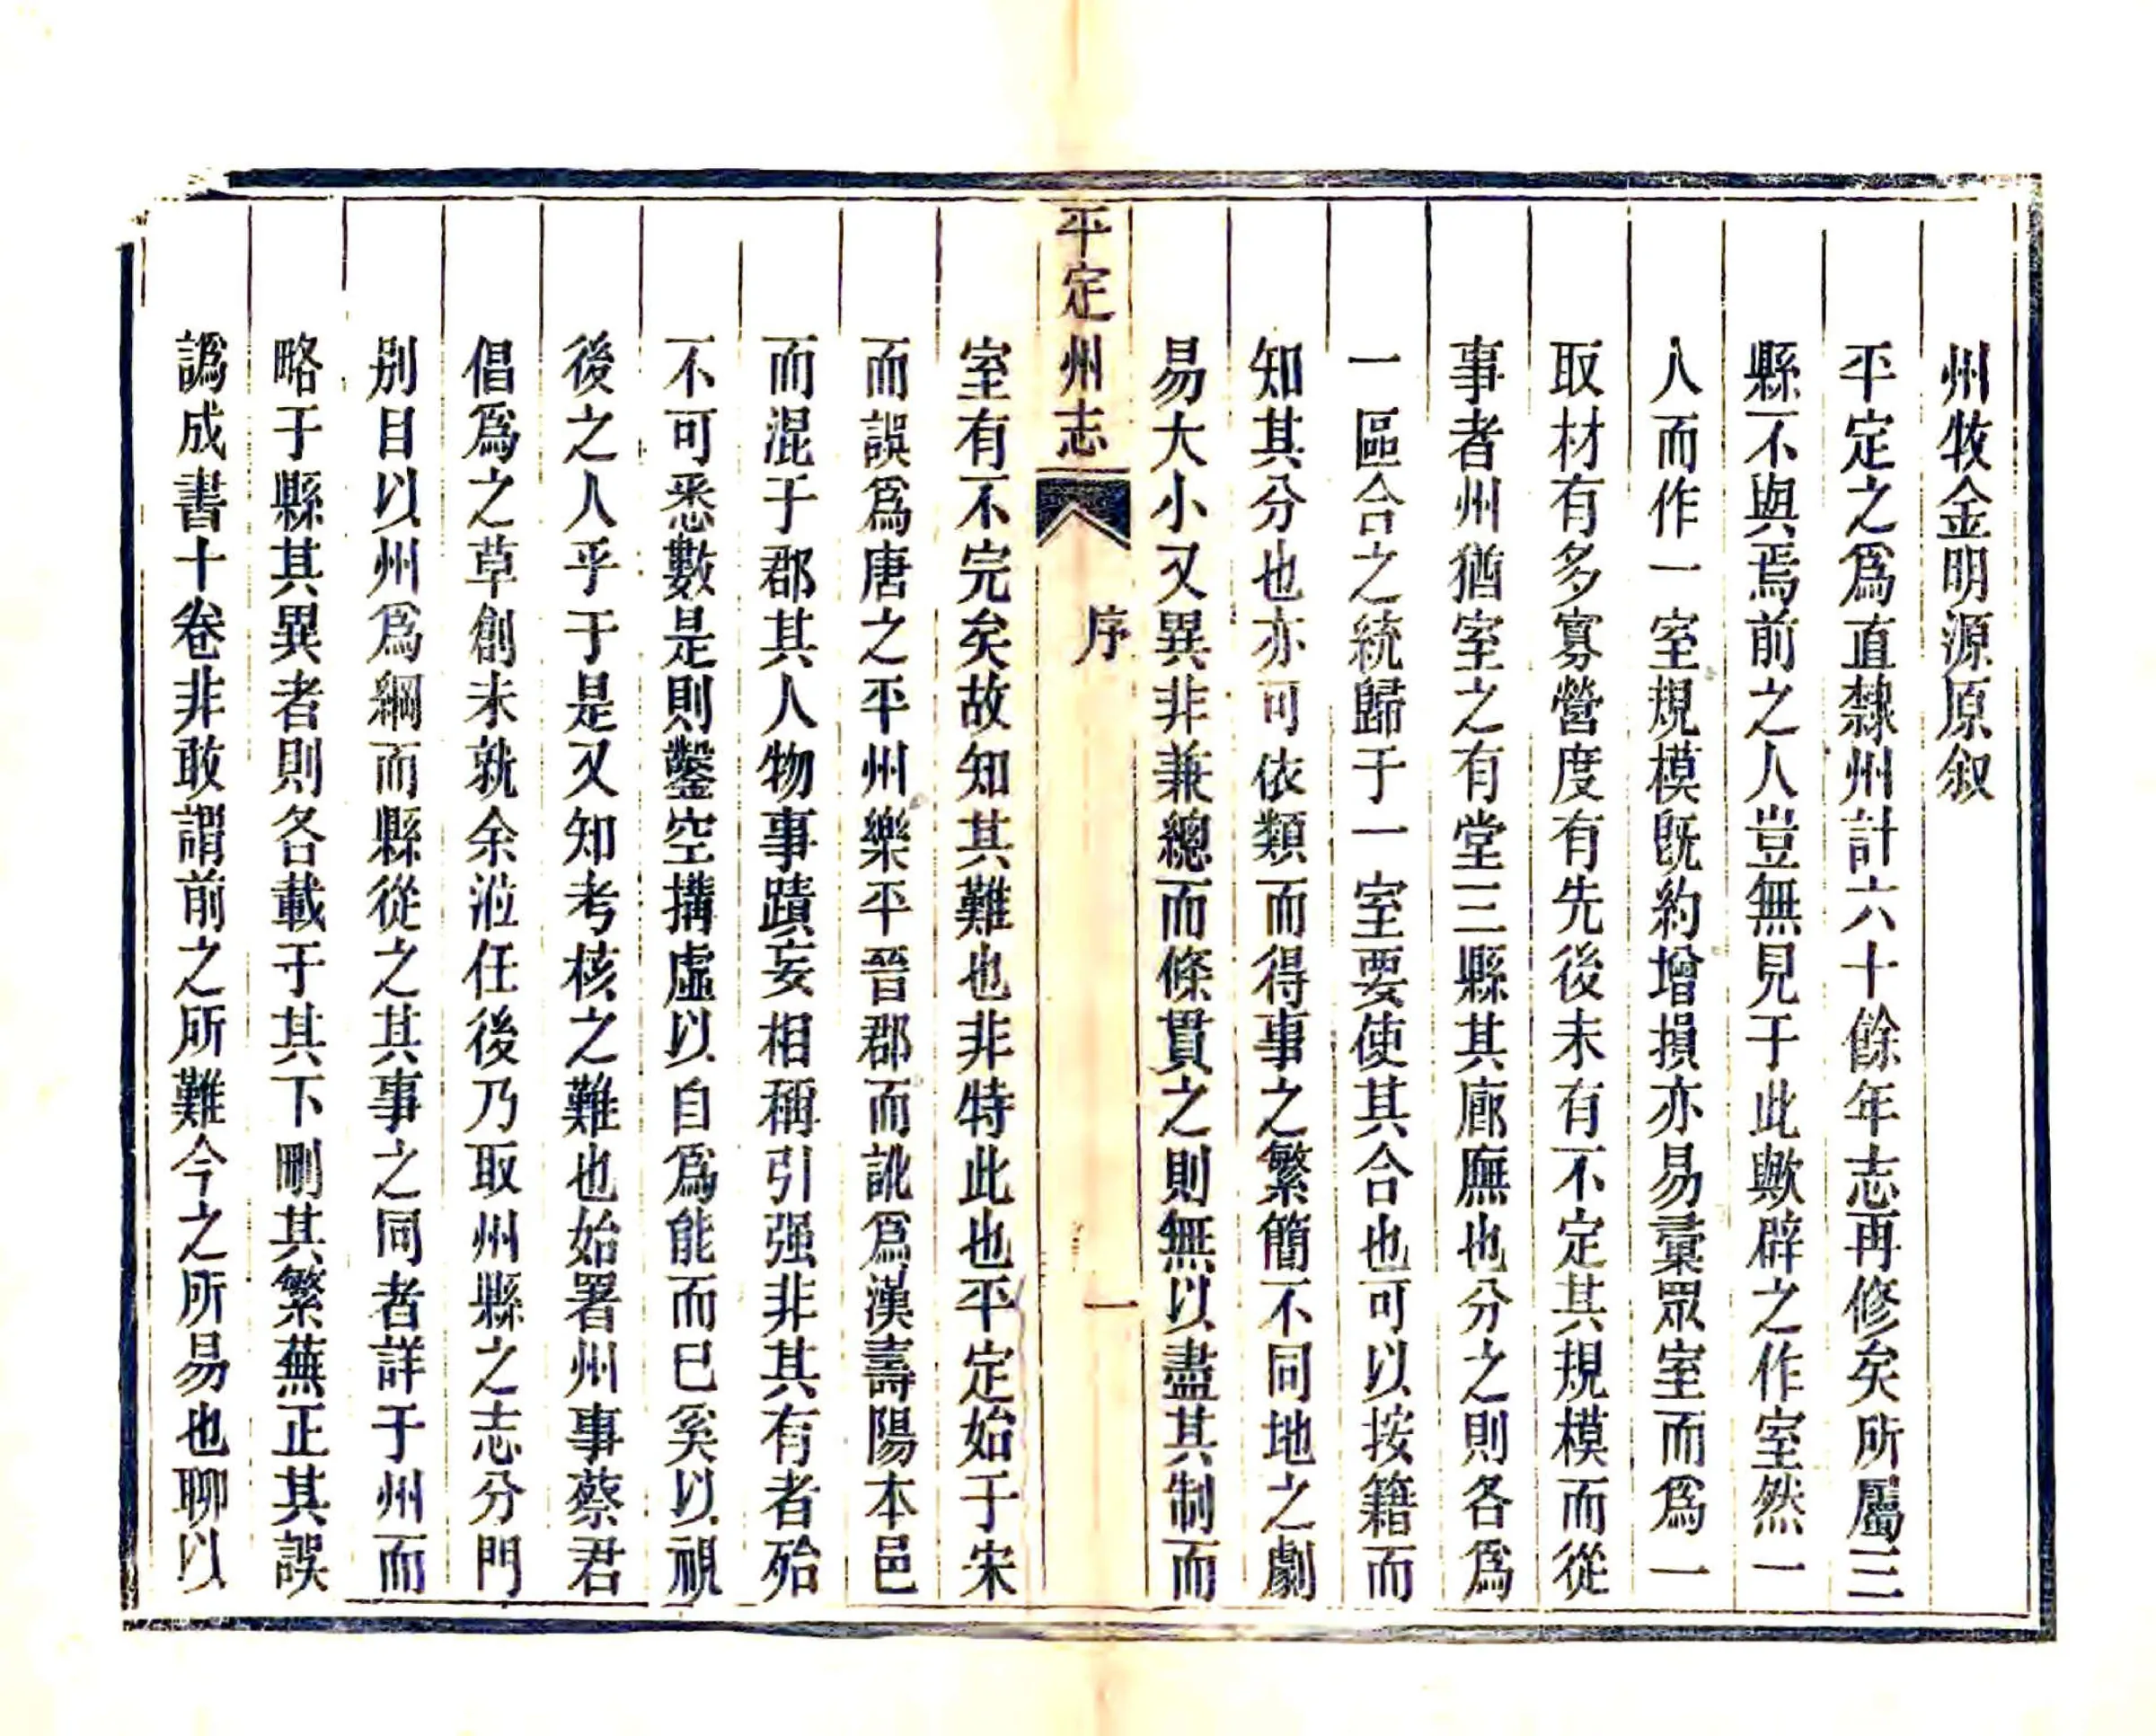 州牧金明源原叙
平定之爲直隸州計六十餘年志再修矣所屬三
縣不與焉前之人豈無見于此歟辟之作室然一
人而作一室規模旣約增損亦易彚眾室而爲一
取材有多寡營度有先後未有不定其規模而從
事者州猶室之有堂三縣其廊廡也分之則各爲
一區合之統歸于一室要使其合也可以按籍而
知其分也亦可依類而得事之繁簡不同地之劇
易大小又異非兼總而條貫之則無以盡其制而
平定州志
序
一
室有不完矣故知其難也非特此也平定始于宋
而誤爲唐之平州樂平晉郡而訛爲漢壽陽本邑
而混于郡其人物事蹟妄相稱引强非其有者殆
不可悉數是則鑿空搆虛以自爲能而已奚以視
後之人乎于是又知考核之難也始署州事蔡君
倡爲之草創未就余涖任後乃取州縣之志分門
別目以州爲綱而縣從之其事之同者詳于州而
略于縣其異者則各載于其下刪其繁蕪正其誤
譌成書十卷非敢謂前之所難今之所易也聊以